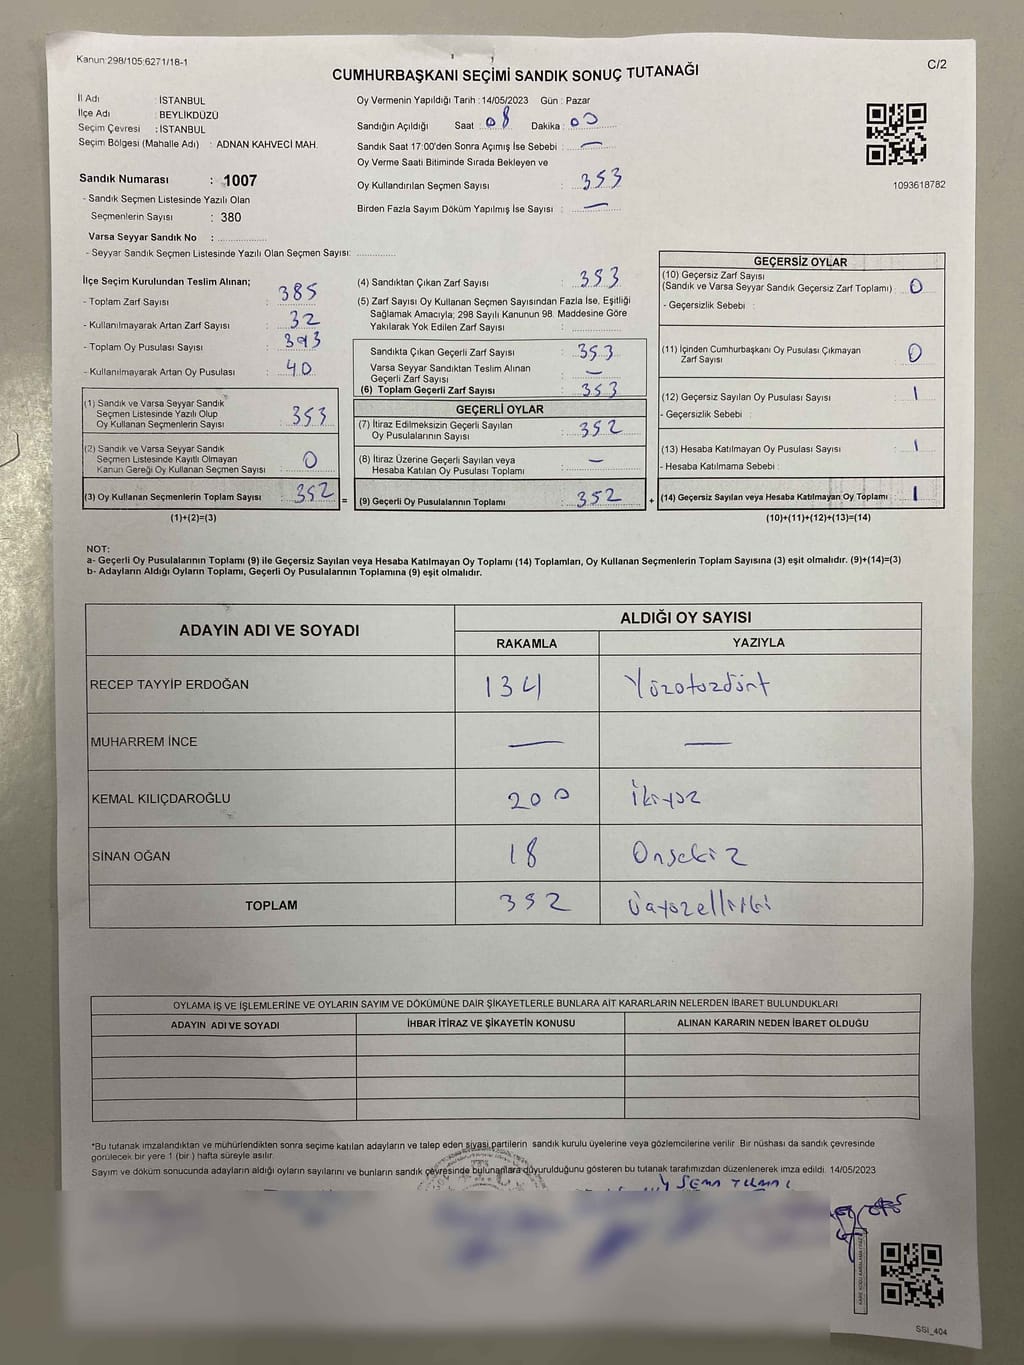 Kanun 298/105;6271/18-1
C/2
CUMHURBAŞKANI SEÇİMİ SANDIK SONUÇ TUTANAĞI
İl Adı : İSTANBUL
İlçe Adı : BEYLİKDÜZÜ
Seçim Çevresi : İSTANBUL
Seçim Bölgesi (Mahalle Adı) : ADNAN KAHVECİ MAH.
Sandık Numarası : 1007
- Sandık Seçmen Listesinde Yazılı Olan
Seçmenlerin Sayısı : 380
Varsa Seyyar Sandık No :
- Seyyar Sandık Seçmen Listesinde Yazılı Olan Seçmen Sayısı:
Oy Vermenin Yapıldığı Tarih : 14/05/2023 Gün : Pazar
Sandığın Açıldığı Saat : 08 Dakika : 00
Sandık Saat 17:00'den Sonra Açımış İse Sebebi : —
Oy Verme Saati Bitiminde Sırada Bekleyen ve
Oy Kullandırılan Seçmen Sayısı : 353
Birden Fazla Sayım Döküm Yapılmış İse Sayısı : —
1093618782
İlçe Seçim Kurulundan Teslim Alınan;
- Toplam Zarf Sayısı : 385
- Kullanılmayarak Artan Zarf Sayısı : 32
- Toplam Oy Pusulası Sayısı : 393
- Kullanılmayarak Artan Oy Pusulası : 40
(1) Sandık ve Varsa Seyyar Sandık
Seçmen Listesinde Yazılı Olup
Oy Kullanan Seçmenlerin Sayısı : 353
(2) Sandık ve Varsa Seyyar Sandık
Seçmen Listesinde Kayıtlı Olmayan
Kanun Gereği Oy Kullanan Seçmen Sayısı : 0
(3) Oy Kullanan Seçmenlerin Toplam Sayısı : 352 =
(1)+(2)=(3)
(4) Sandıktan Çıkan Zarf Sayısı : 353
(5) Zarf Sayısı Oy Kullanan Seçmen Sayısından Fazla İse, Eşitliği
Sağlamak Amacıyla; 298 Sayılı Kanunun 98. Maddesine Göre
Yakılarak Yok Edilen Zarf Sayısı :
Sandıkta Çıkan Geçerli Zarf Sayısı : 353
Varsa Seyyar Sandıktan Teslim Alınan
Geçerli Zarf Sayısı : —
(6) Toplam Geçerli Zarf Sayısı : 353
GEÇERLİ OYLAR
(7) İtiraz Edilmeksizin Geçerli Sayılan
Oy Pusulalarının Sayısı : 352
(8) İtiraz Üzerine Geçerli Sayılan veya
Hesaba Katılan Oy Pusulası Toplamı : —
(9) Geçerli Oy Pusulalarının Toplamı : 352 +
GEÇERSİZ OYLAR
(10) Geçersiz Zarf Sayısı
(Sandık ve Varsa Seyyar Sandık Geçersiz Zarf Toplamı) : 0
- Geçersizlik Sebebi :
(11) İçinden Cumhurbaşkanı Oy Pusulası Çıkmayan
Zarf Sayısı : 0
(12) Geçersiz Sayılan Oy Pusulası Sayısı : 1
- Geçersizlik Sebebi :
(13) Hesaba Katılmayan Oy Pusulası Sayısı : 1
- Hesaba Katılmama Sebebi :
(14) Geçersiz Sayılan veya Hesaba Katılmayan Oy Toplamı : 1
(10)+(11)+(12)+(13)=(14)
NOT:
a- Geçerli Oy Pusulalarının Toplamı (9) ile Geçersiz Sayılan veya Hesaba Katılmayan Oy Toplamı (14) Toplamları, Oy Kullanan Seçmenlerin Toplam Sayısına (3) eşit olmalıdır. (9)+(14)=(3)
b- Adayların Aldığı Oyların Toplamı, Geçerli Oy Pusulalarının Toplamına (9) eşit olmalıdır.
ADAYIN ADI VE SOYADI
ALDIĞI OY SAYISI
RAKAMLA YAZIYLA
RECEP TAYYİP ERDOĞAN 134 Yüzotuzdört
MUHARREM İNCE — —
KEMAL KILIÇDAROĞLU 200 İkiyüz
SİNAN OĞAN 18 Onsekiz
TOPLAM 352 Üçyüzelliiki
OYLAMA İŞ VE İŞLEMLERİNE VE OYLARIN SAYIM VE DÖKÜMÜNE DAİR ŞİKAYETLERLE BUNLARA AİT KARARLARIN NELERDEN İBARET BULUNDUKLARI
ADAYIN ADI VE SOYADI İHBAR İTİRAZ VE ŞİKAYETİN KONUSU ALINAN KARARIN NEDEN İBARET OLDUĞU
*Bu tutanak imzalandıktan ve mühürlendikten sonra seçime katılan adayların ve talep eden siyasi partilerin sandık kurulu üyelerine veya gözlemcilerine verilir. Bir nüshası da sandık çevresinde
görülecek bir yere 1 (bir) hafta süreyle asılır.
Sayım ve döküm sonucunda adayların aldığı oyların sayılarını ve bunların sandık çevresinde bulunanlara duyurulduğunu gösteren bu tutanak tarafımızdan düzenlenerek imza edildi. 14/05/2023
SSI_404